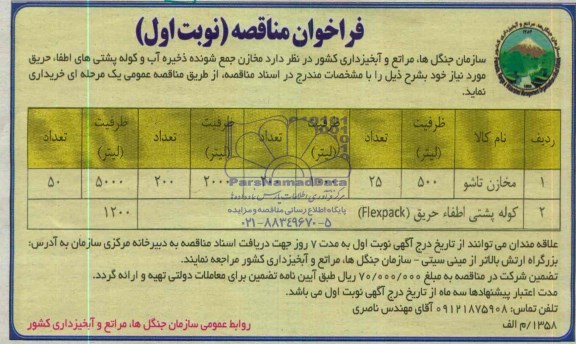 فراخوان مناقصه (نوبت اول)
سازمان جنگل ها، مراتع و آبخیزداری کشور در نظر دارد مخازن جمع شونده ذخیره آب و کوله پشتی های اطفاء حریق
مورد نیاز خود بشرح ذیل را با مشخصات مندرج در اسناد مناقصه، از طریق مناقصه عمومی یک مرحله ای خریداری
نماید.
ردیف نام کالا ظرفیت (لیتر) تعداد ظرفیت (لیتر) تعداد ظرفیت (لیتر) تعداد ظرفیت (لیتر) تعداد
۱ مخازن تاشو ۵۰۰ ۲۵ ۲۰۰۰ ۲۰۰ ۵۰۰۰ ۵۰
۲ کوله پشتی اطفاء حریق (Flexpack) ۱۲۰۰
ParsNamadData
پایگاه اطلاع رسانی مناقصه و مزایده
۰۲۱-۸۸۳۴۹۶۷۰-۵
علاقه مندان می توانند از تاریخ درج آگهی نوبت اول به مدت ۷ روز جهت دریافت اسناد مناقصه به دبیرخانه مرکزی سازمان به آدرس:
بزرگراه ارتش بالاتر از مینی سیتی - سازمان جنگل ها، مراتع و آبخیزداری کشور مراجعه نمایند.
تضمین شرکت در مناقصه به مبلغ ۷۰/۰۰۰/۰۰۰ ریال طبق آیین نامه تضمین برای معاملات دولتی تهیه و ارائه گردد.
مدت اعتبار پیشنهادها سه ماه از تاریخ درج آگهی نوبت اول می باشد.
تلفن تماس: ۰۹۱۲۱۸۷۵۹۰۸ آقای مهندس ناصری
۱۳۵۸/م الف
روابط عمومی سازمان جنگل ها، مراتع و آبخیزداری کشور